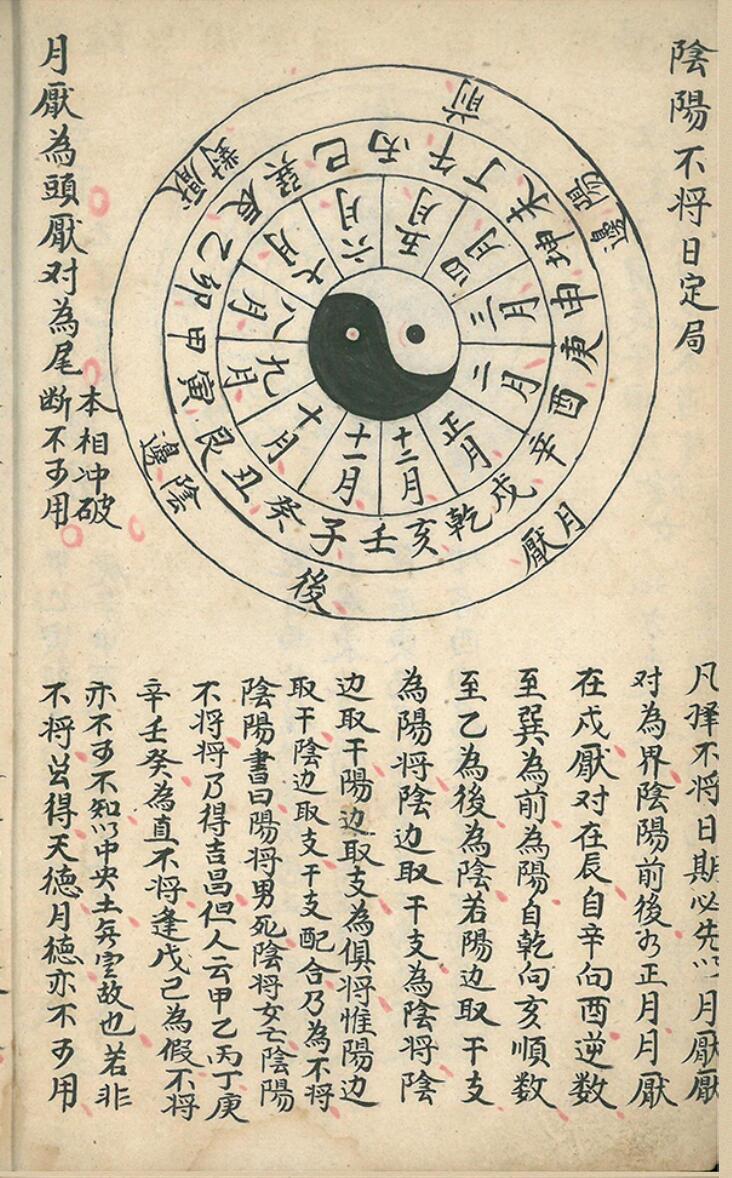 陰陽不将日定局
前
陽邊
月厭
後
陰邊
對厭
巳丙午丁未坤申庚酉辛戌乾亥壬子癸丑艮寅甲卯乙辰巽
正月
二月
三月
四月
五月
六月
七月
八月
九月
十月
十一月
十二月
月厭為頭厭对為尾
本相冲破
断不可用
凡择不将日期必先以月厭厭
对為界陰陽前後如正月月厭
在戌厭对在辰自辛向酉逆数
至巽為前為陽自乾向亥順数
至乙為後為陰若陽边取干支
為陽将陰边取干支為陰将陰
边取干陽边取支為俱将惟陽边
取干陰边取支干支配合乃為不将
陰陽書曰陽将男死陰将女亡陰陽
不将将乃得吉昌但人云甲乙丙丁庚
辛壬癸為直不将逢戊己為假不将
亦不可不知以中央土無定故也若非
不将岂得天德月德亦不可用